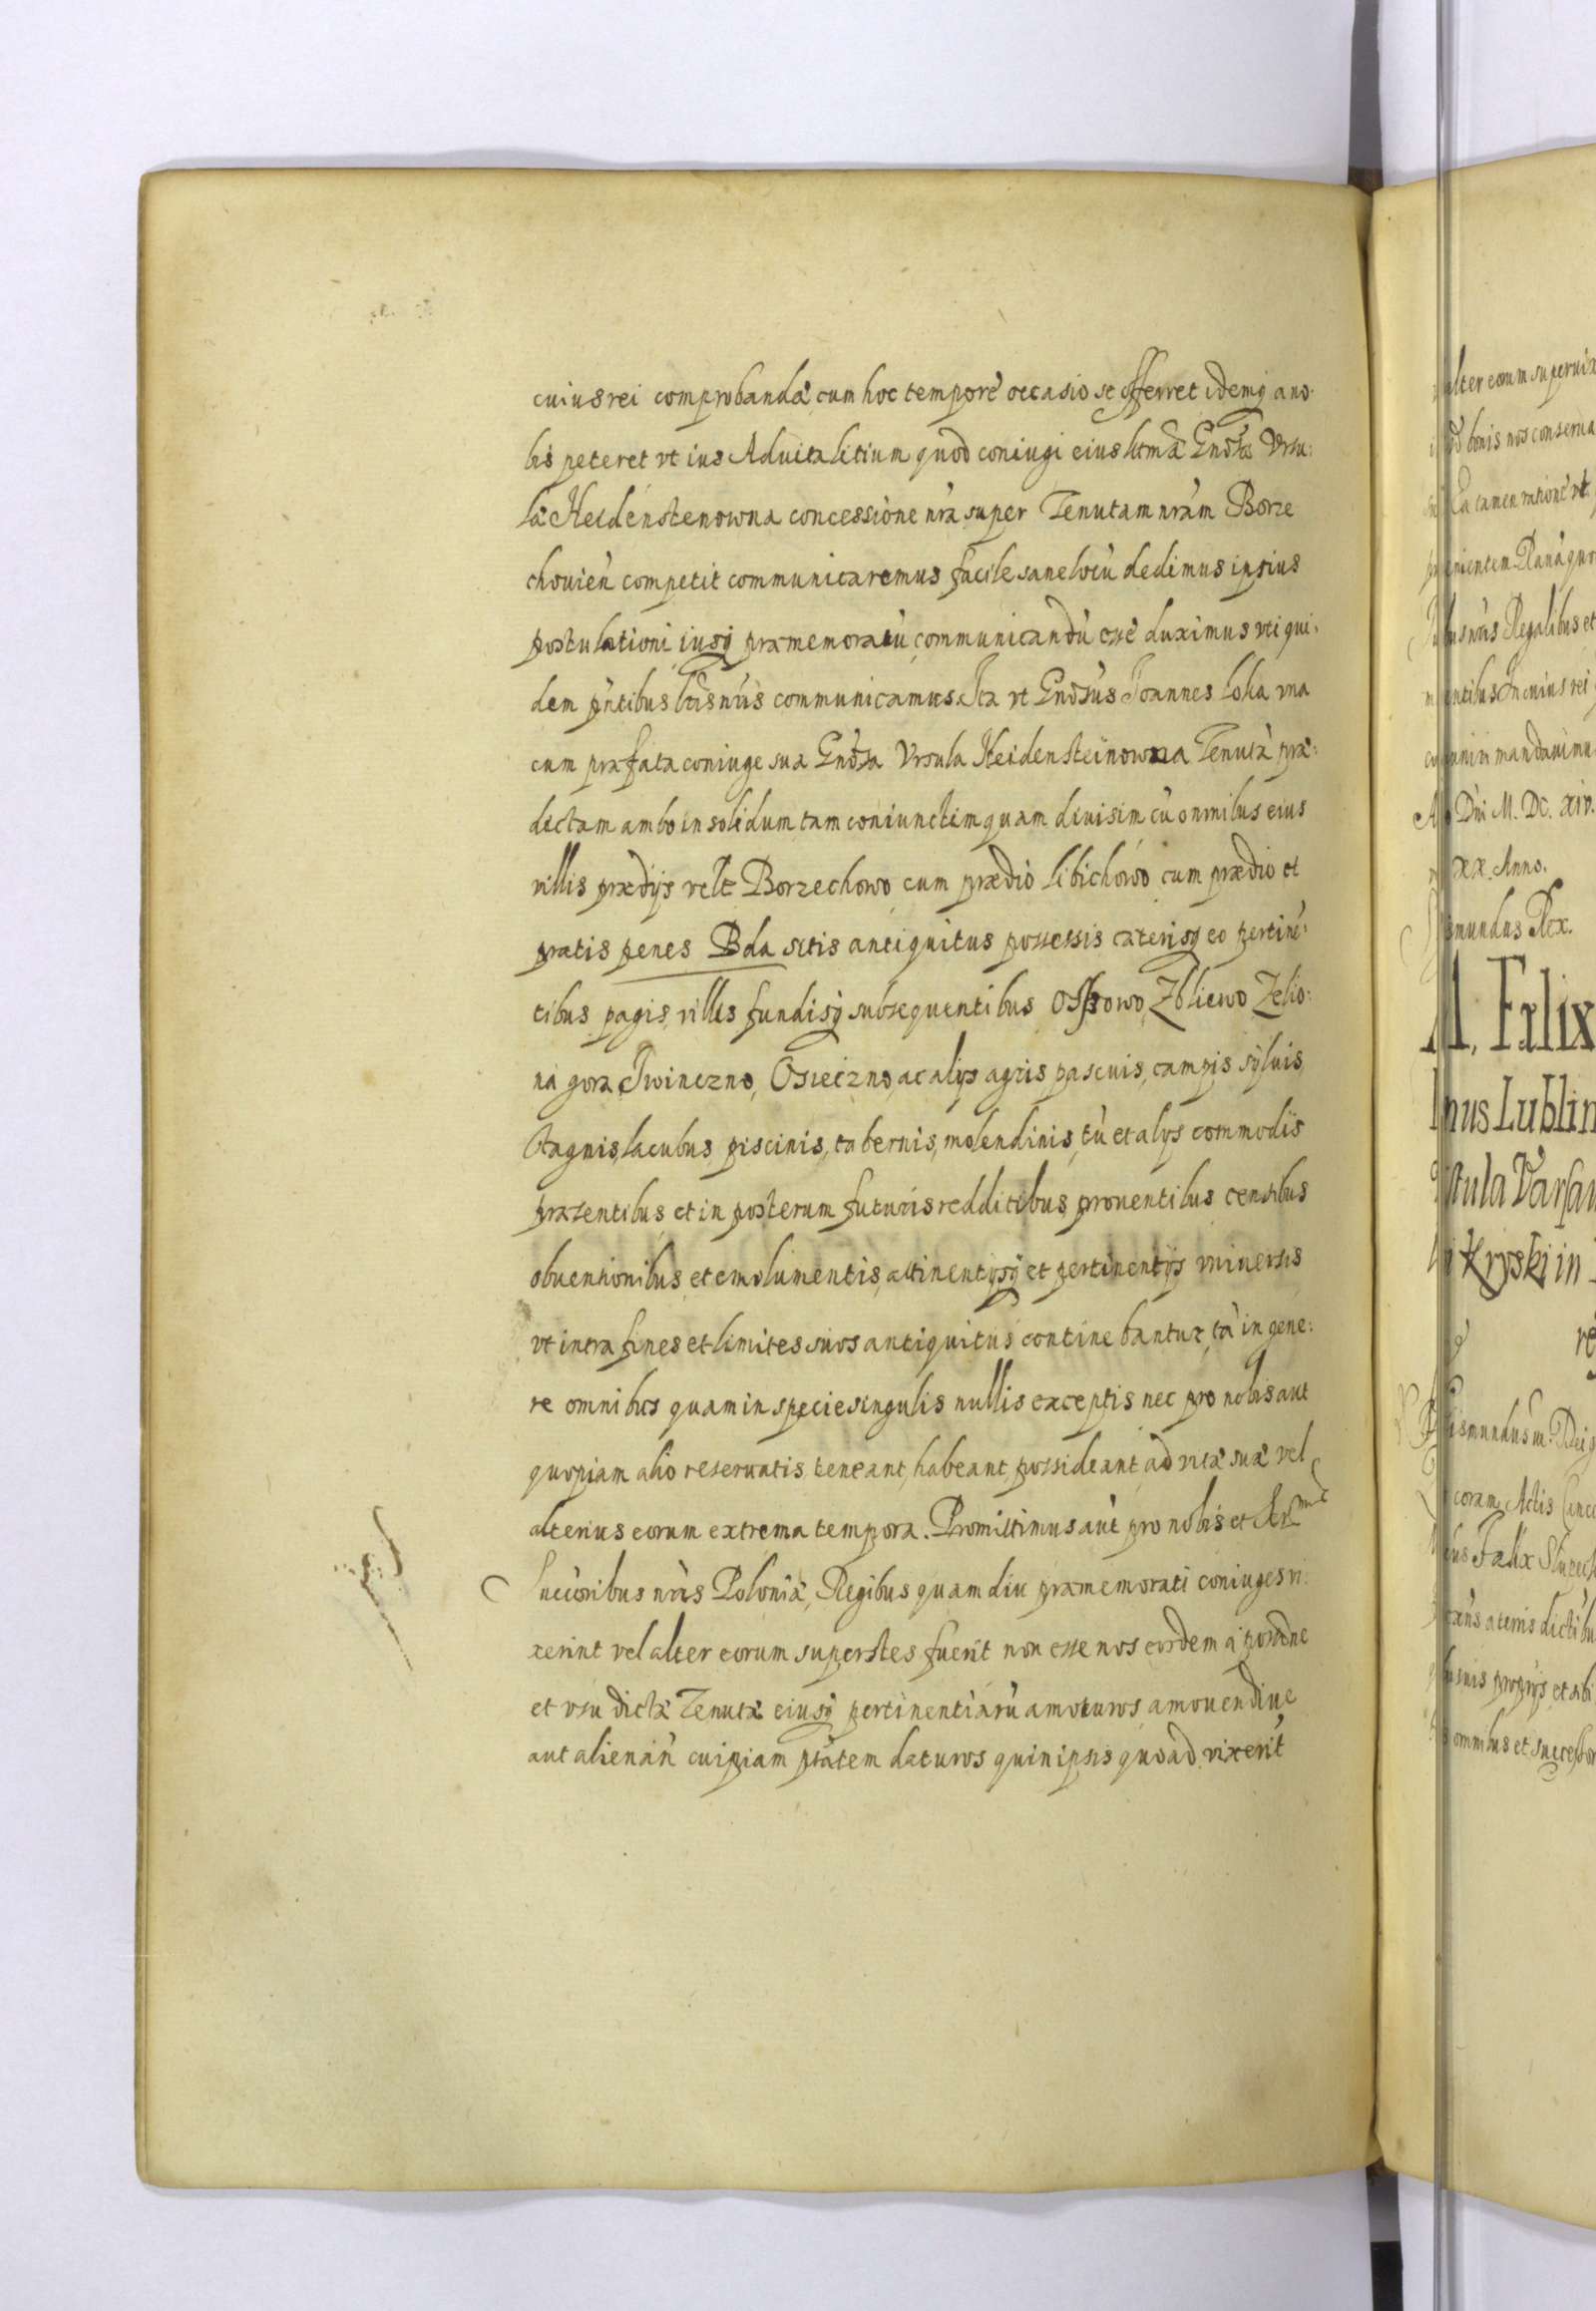 cuius rei comprobandæ, cum hoc tempore occasio se offerret idemq a no:
bis peteret vt ius Aduitalitium quod coniugi eius Gnosæ Vrsu:
læ Heidenstenowna concessione nrà super Tenutam nràm Borze
chouien competit communicaremus facile sane locù dedimus ipsius
postulationi iusq præmemoratù communicandù esse duximus vti qui:
dem pntibus lris nris communicamus. Ita vt Gnosus Joannes Lolia vna
cum præfata coniuge sua Gnosa Vrsula Heidensteinowna Tenutà præ:
dictam ambo in solidum tam coniunctim quam diuisim cù omnibus eius
villis prædijs velt Borzechowo cum prædio Libichowo cum prædio et
pratis penes Bda sitis antiquitus possessis cæterisq eo pertinè:
tibus pagis, villis fundisq subsequentibus Ossowo, Zbliewo Zelio:
na gora Iwinczno, Osieczno, ac alijs agris pascuis, campis syluis,
stagnis, lacubus piscinis, tabernis, molendinis, tù et alys commodis
præsentibus et in posterum futuris redditibus prouentibus censibus
obuentionibus, et emolumentis, attinentijsq et pertinentijs vniuersis
vt intra fines et limites suos antiquitus continebantur, tà in gene:
re omnibus quam in specie singulis nullis exceptis nec pro nobis aut
quopiam alio reseruatis teneant, habeant, possideant ad vitæ suæ vel
alterius eorum extrema tempora. Promittimus aùt pro nobis et
Succoribus nris Poloniæ, Regibus quam diu præmemorati coniuges vi:
xerint vel alter eorum superstes fuerit non esse nos eosdem à possone
et vsu dictæ Tenutæ eiusq pertinentiarù amoturos, amouendiue
aut alienàn cuipiam ptàtem daturos quin ipsis quoad vixerit
alter eorum superuix
bonis nos conserua
Ea tamen rationè vt
nris Regalibus et
In cuius rei
mandauimu
Dni M. DC. XIV.
XX. Anno.
mundus Rex.
Fælix
nus Lublin
Kryski in
re
ismundus III. Dei g
coram Actis Cance
Fælix Slupeck
a ternis dictibu
suis proprijs et sibi
omnibus et successor